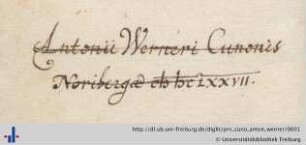 Antonii Werneri Cunonis
Noribergæ clↄ lↄcLXXVII.
http://dl.ub.uni-freiburg.de/diglit/prv_cuno_anton_werner/0001
© Universitätsbibliothek Freiburg